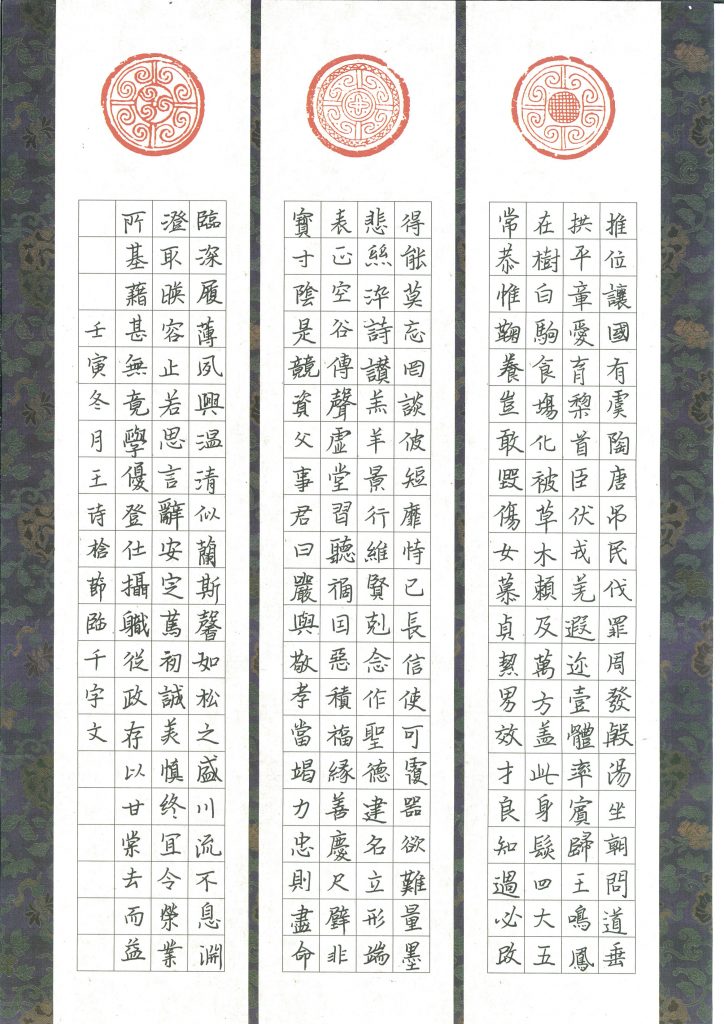 推位讓國有虞陶唐吊民伐罪周發殷湯坐朝問道垂
拱平章愛育黎首臣伏戎羌遐迩壹體率賓歸王鳴鳳
在樹白駒食場化被草木賴及萬方盖此身髮四大五
常恭惟鞠養豈敢毀傷女慕貞絜男效才良知過必改
得能莫忘罔談彼短靡恃己長信使可覆器欲難量墨
悲絲染詩讃羔羊景行維賢剋念作聖德建名立形端
表正空谷傳聲虛堂習聽禍因惡積福緣善慶尺璧非
寶寸陰是競資父事君曰嚴與敬孝當竭力忠則盡命
臨深履薄夙興温清似蘭斯馨如松之盛川流不息淵
澄取暎容止若思言辭安定篤初誠美慎終宜令榮業
所基藉甚無竟學優登仕攝職從政存以甘棠去而益
壬寅冬月王诗桧節臨千字文